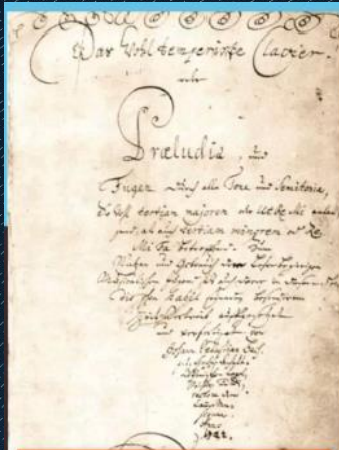 Das Wohl temperirte Clavier.
oder
Præludia, und
Fugen durch alle Tone und Semitonia,
So wohl tertiam majorem oder Ut Re Mi anlan-
gend, als auch tertiam minorem oder Re
Mi Fa betreffend. Zum
Nutzen und Gebrauch der Lehrbegierigen
Musicalischen Jugend, als auch derer in diesem
schon habil seyenden besonderem
Zeitvertreib auffgesetzet
und verfertiget von
Johann Sebastian Bach.
1722.